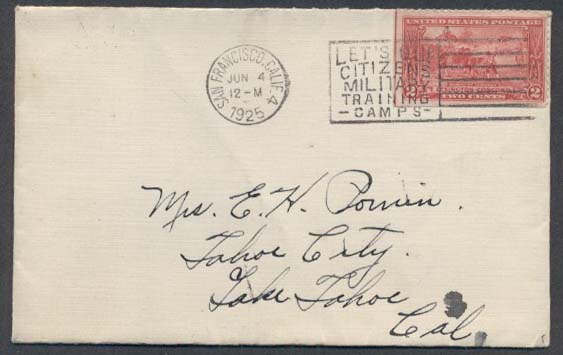 SAN FRANCISCO, CALIF. 4
JUN 4
12-M
1925
LET'S
CITIZENS
MILITARY
TRAINING
-CAMPS-
UNITED STATES POSTAGE
2 TWO CENTS 2
Mrs. E. H.
Tahoe City.
Lake Tahoe
Cal.